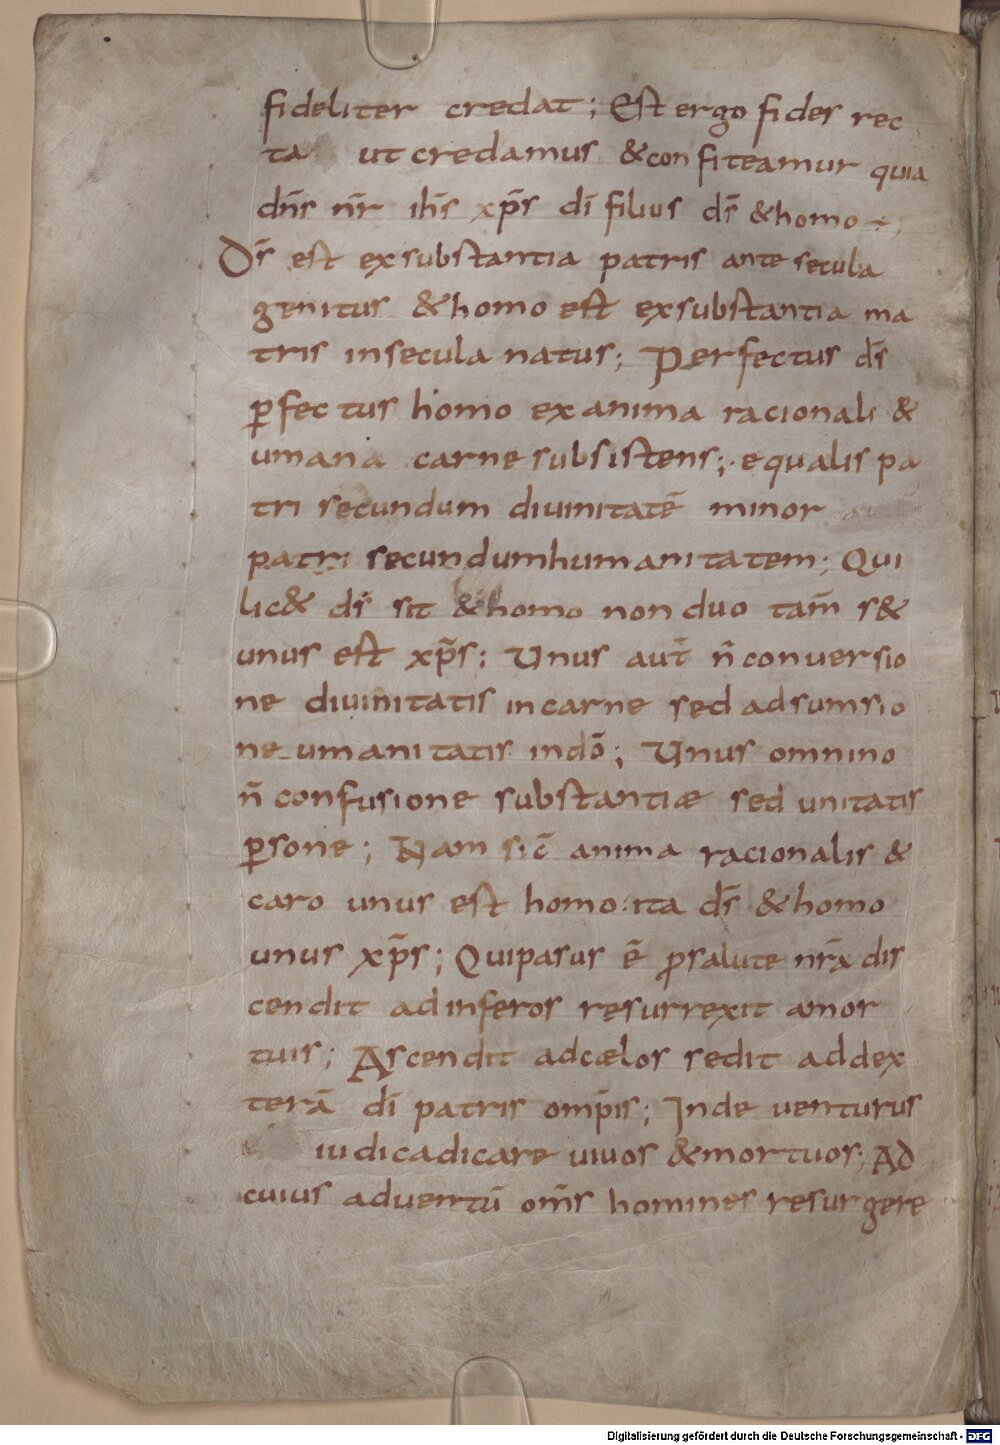 fideliter credat; Est ergo fides rec
ta ut credamus & confiteamur quia
dn̄s nr̄ ih̄s xp̄s dī filius ds̄ & homo
Ds̄ est exsubstantia patris ante secula
genitus & homo est exsubstantia ma
tris insecula natus; Perfectus ds̄
ꝑfectus homo ex anima racionali &
umana carne subsistens; equalis pa
tri secundum diuinitatē minor
patri secundum humanitatem; Qui
lic& ds̄ sit & homo non duo tam̄ s&
unus est xp̄s; Unus aut̄ n̄ conuersio
ne diuinitatis in carne sed adsumsio
ne umanitatis indō; Unus omnino
n̄ confusione substantiæ sed unitatis
ꝑsone; Nam sic̄ anima racionalis &
caro unus est homo ita ds̄ & homo
unus xp̄s; Qui pasus ē ꝓsalute nr̄a dis
cendit ad inferos resurrexit amor
tuis; Ascendit adcælos sedit addex
terā dī patris omp̄is; Inde uenturus
iudicadicare uiuos & mortuos; Ad
cuius aduentū om̄s homines resurgere
Digitalisierung gefördert durch die Deutsche Forschungsgemeinschaft - DFG